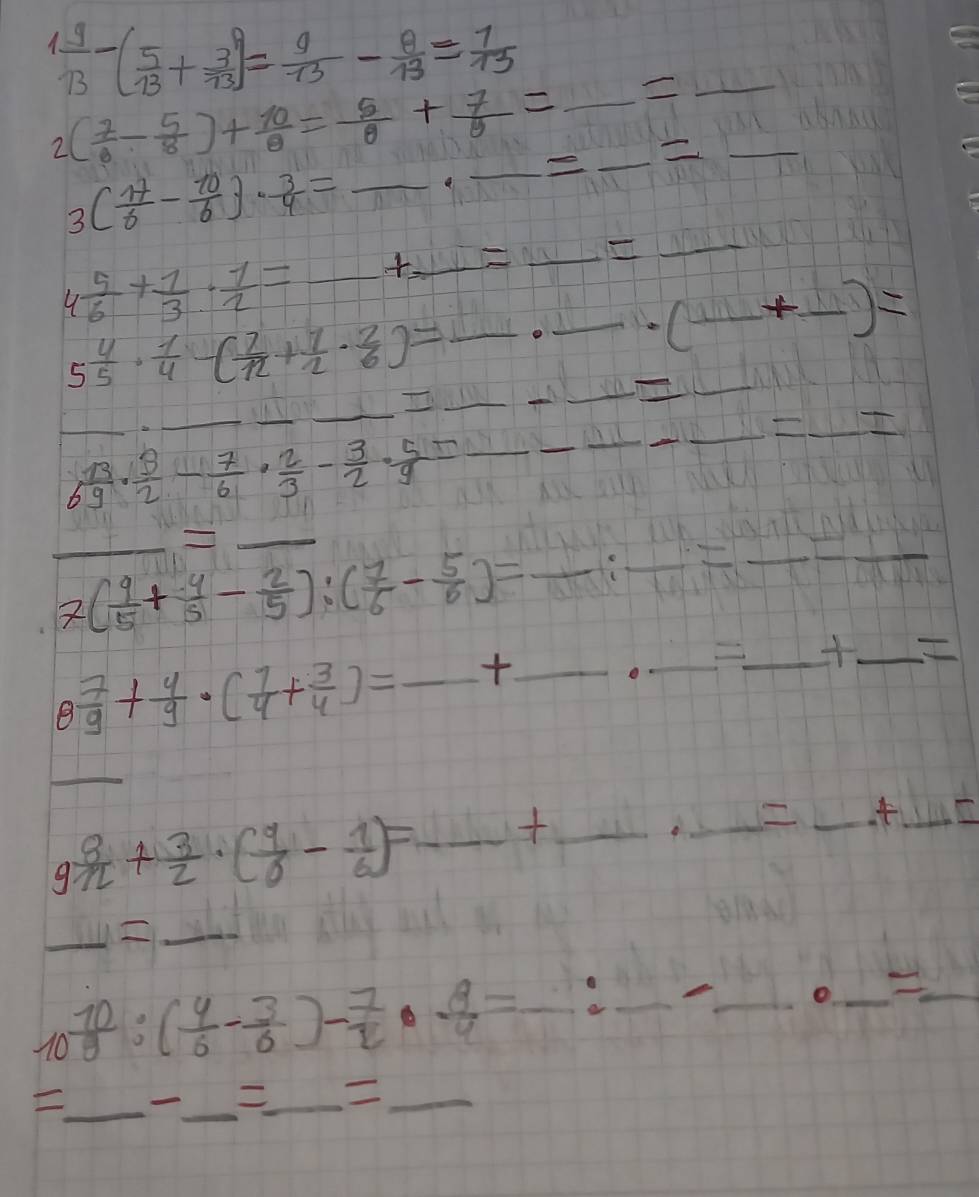 1 9/13 - (5/13 + 3/13) = 9/13 - 8/13 = 1/13
2 (7/8 - 5/8) + 10/8 = 5/8 + 7/8 = __ = __
3 (17/6 - 10/6) · 3/4 = __ · __ = __ = __
4 5/6 + 1/3 · 1/2 = __ + __ = __ = __
5 4/5 · 1/4 - (7/12 + 1/2 · 2/6) = __ · __ · (__ + __) =
__ · __ - __ = __ - __ = __
6 13/9 · 9/2 - 7/6 · 2/3 - 3/2 · 5/9 = __ - __ - __ = __ =
__ = __
7 (9/5 + 4/5 - 2/5) : (7/6 - 5/6) = __ : __ = __ = __
8 7/9 + 4/9 · (7/4 + 3/4) = __ + __ · __ = __ + __ =
__
9 8/12 + 3/2 · (9/6 - 1/6) = __ + __ · __ = __ + __ =
__ = __
10 10/8 : (4/6 - 3/6) - 7/2 · 9/4 = __ : __ - __ · __ = __
= __ - __ = __ = __